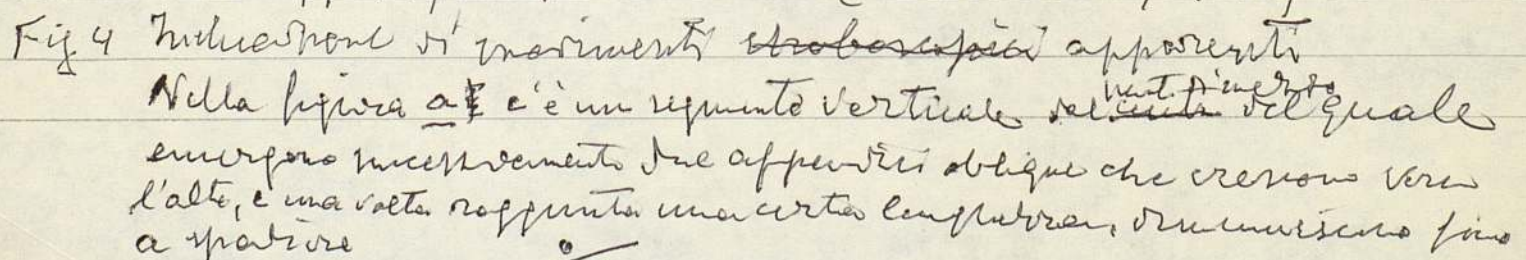 Fig 4 Induzione di movimenti stroboscopici apparenti
Nella figura a c'è un segmento verticale dal punto di mezzo del quale
emergono successivamente due appendici oblique che crescono verso
l'alto, e una volta raggiunta una certa lunghezza, diminuiscono fino
a sparire